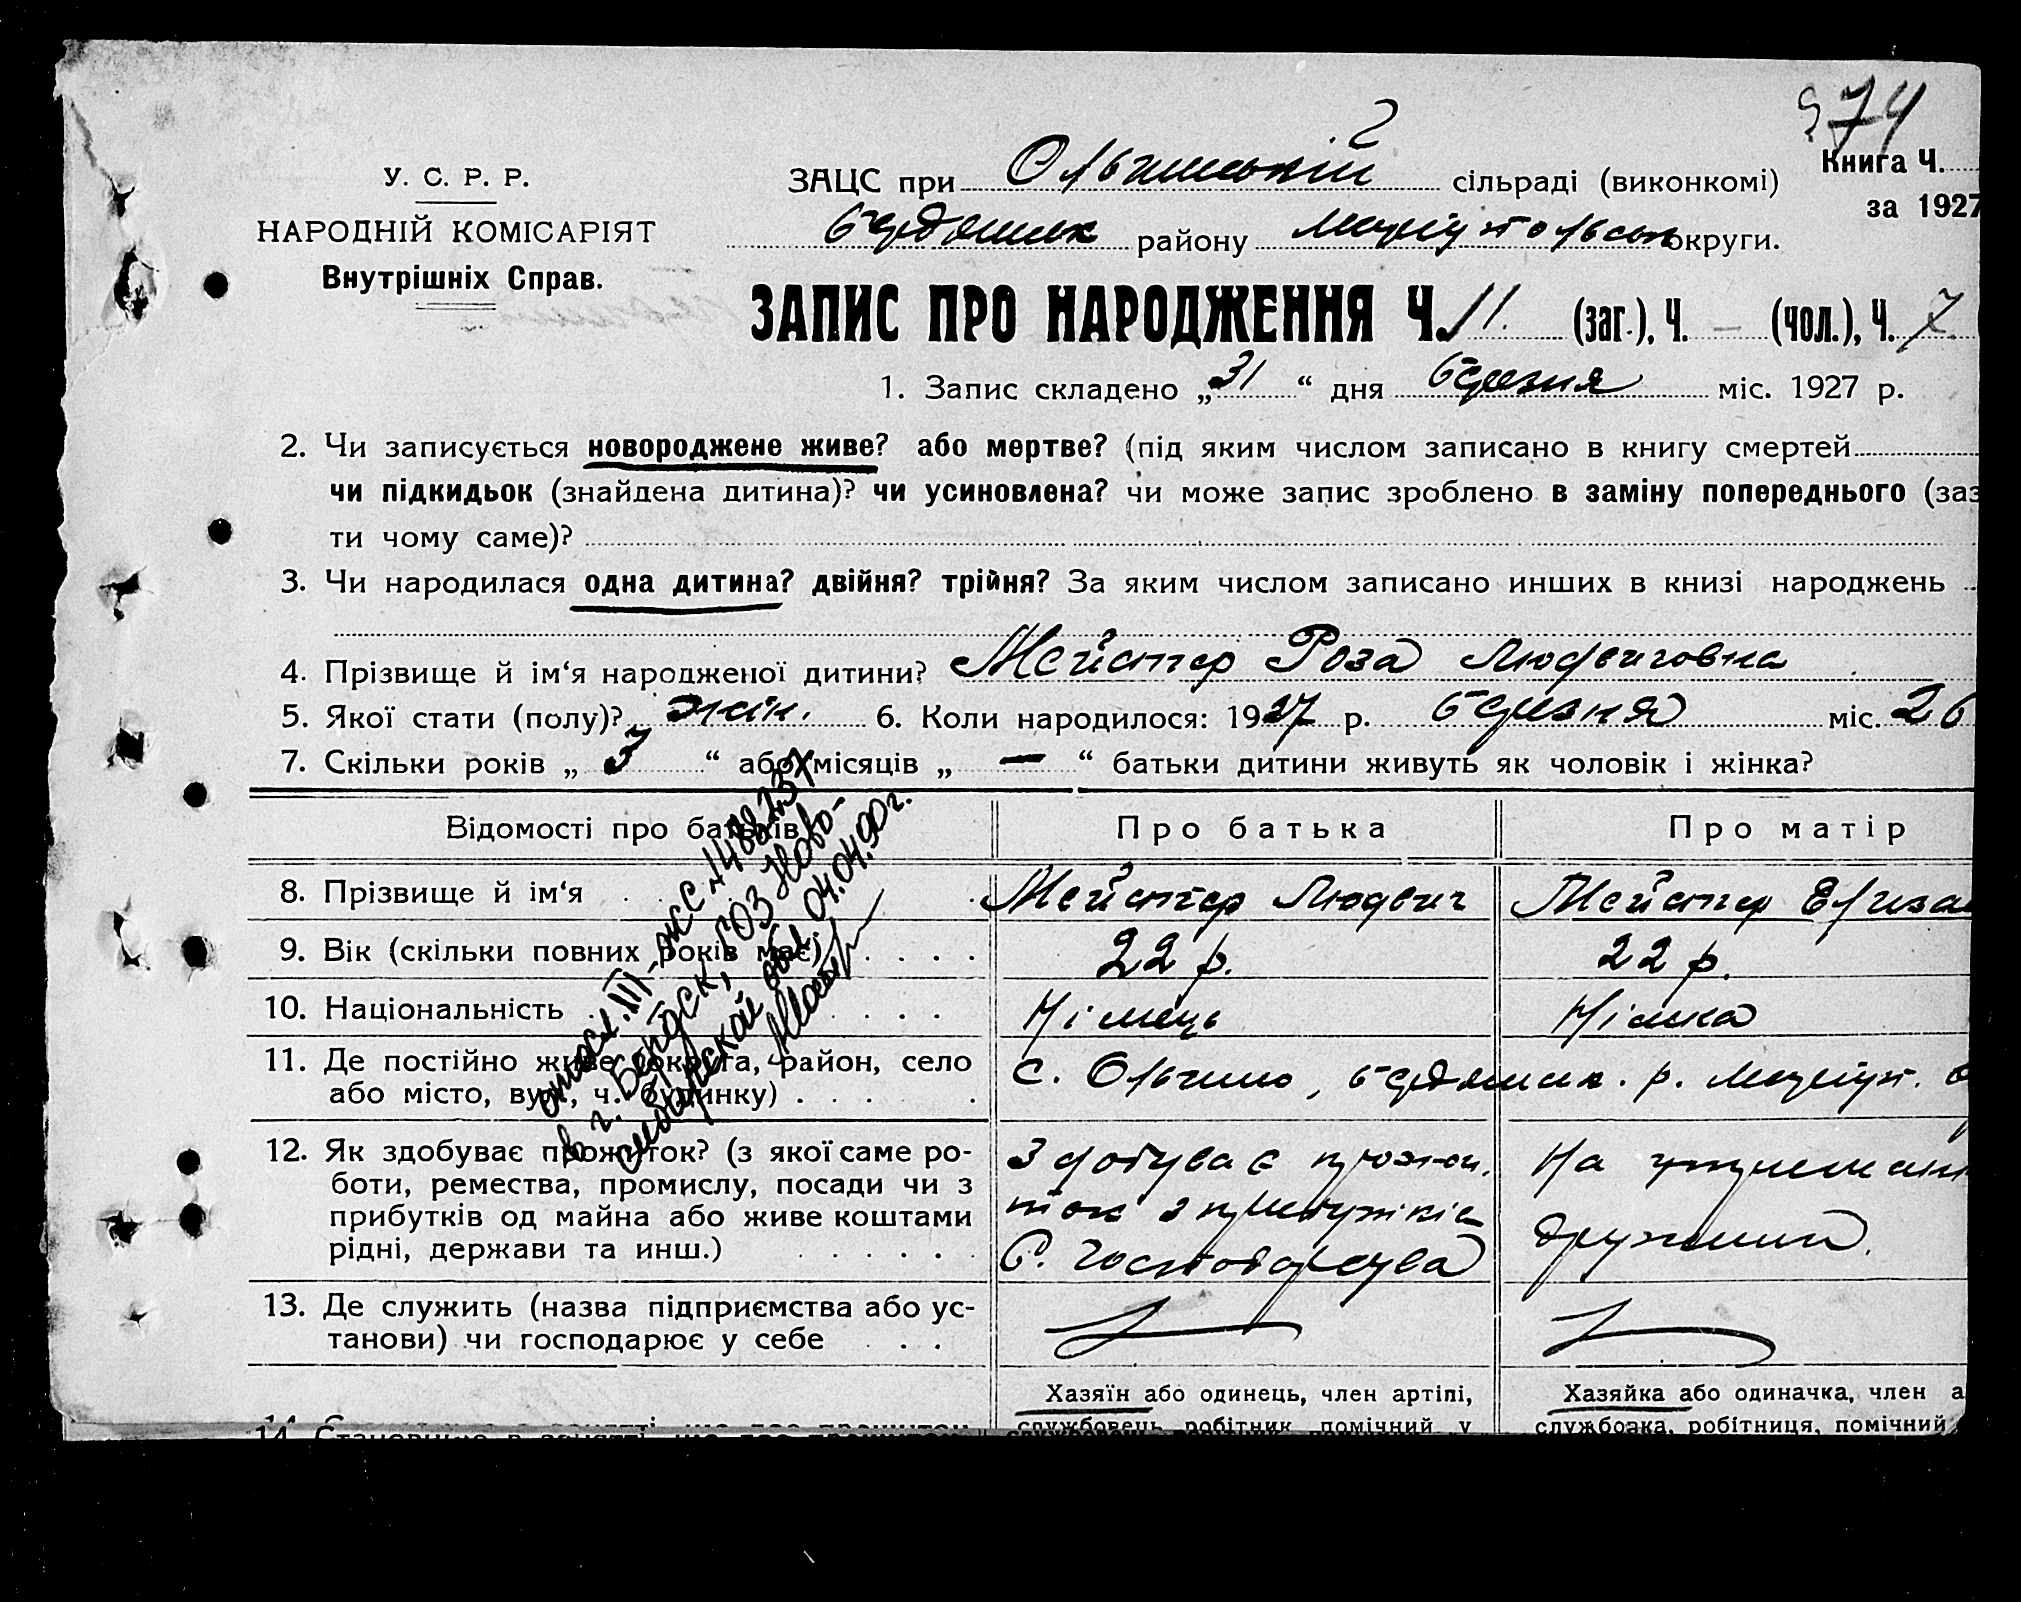 74
У. С. Р. Р.
НАРОДНІЙ КОМІСАРІЯТ
Внутрішніх Справ.
ЗАЦС при Ольгинській сільраді (виконкомі)
Книга Ч.
за 1927
Бердянськ району Маріупольськ округи.
ЗАПИС ПРО НАРОДЖЕННЯ Ч. 11. (заг.), Ч. – (чол.), Ч. 7
1. Запис складено „31“ дня березня міс. 1927 р.
2. Чи записується новороджене живе? або мертве? (під яким числом записано в книгу смертей
чи підкидьок (знайдена дитина)? чи усиновлена? чи може запис зроблено в заміну попереднього (заз
ти чому саме)?
3. Чи народилася одна дитина? двійня? трійня? За яким числом записано инших в книзі народжень
4. Прізвище й ім‘я народженої дитини? Мейстер Роза Людвиговна
5. Якої стати (полу)? жін. 6. Коли народилося: 1927 р. березня міс. 26
7. Скільки років „ 3 “ або місяців „ — “ батьки дитини живуть як чоловік і жінка?
Відомості про батьків
Про батька
Про матір
8. Прізвище й ім‘я
Мейстер Людвиг
Мейстер Елиза
9. Вік (скільки повних років має)
22 р.
22 р.
10. Національність
Німець
Німка
11. Де постійно живе (округа, район, село
або місто, вул., ч. будинку)
с. Ольгино, бердянськ. р. Маріуп. о
12. Як здобуває прожиток? (з якої саме ро-
боти, ремества, промислу, посади чи з
прибутків од майна або живе коштами
рідні, держави та инш.)
Здобуває прожи-
ток з прибутків
С. Господарства
На утриманн
дружини.
13. Де служить (назва підприємства або ус-
танови) чи господарює у себе
Хазяїн або одинець, член артілі,
службовець, робітник, помічний у
Хазяйка або одиначка, член а
службовка, робітниця, помічний
14. Становище в занятті, що дає прожиток
III-ЖС № 1488237
в г. Бердск, ГОЗ Ново-
сибирской обл. 04.04.90 г.